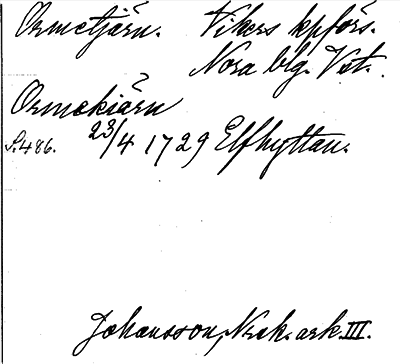 Ormetjärn. Vikers kpförs.
Nora blg. Vst.
Ormekiärn
S. 486. 23/4 1729 Elfhyttan.
Johansson, Nrk. ark. III.